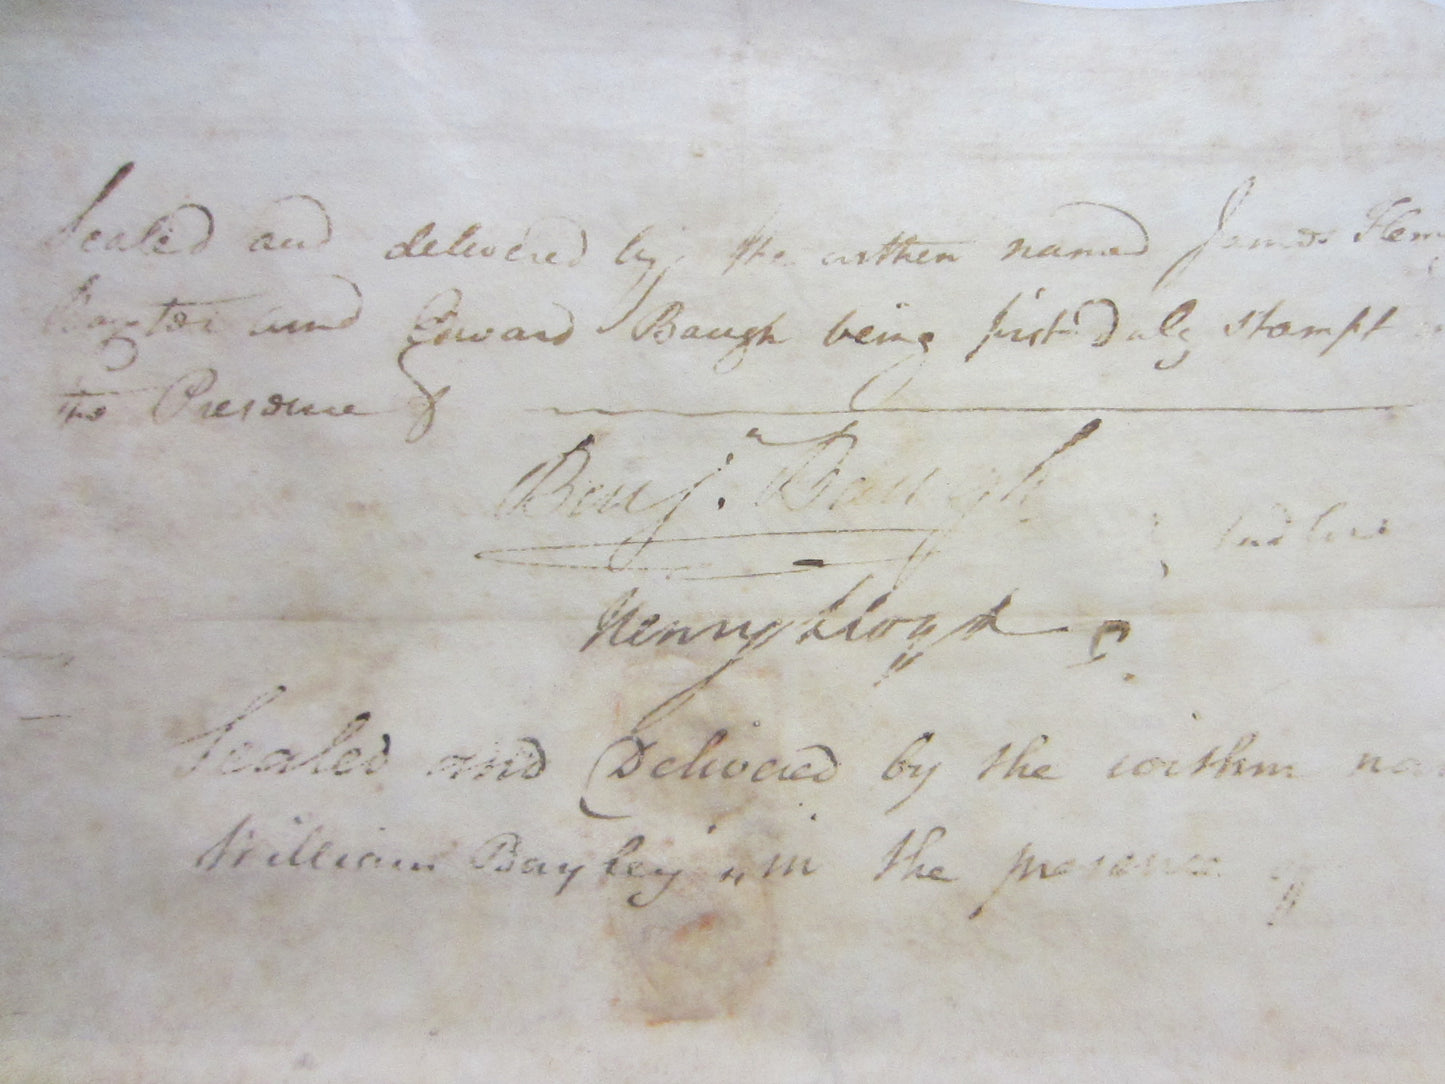 Sealed and delivered by the within named James
and Edward Baugh being first Duly Stampt
the Presence of
Benj. Baugh
Ludlow
Henry Lloyd
Sealed and Delivered by the within
William Bayley in the presence of